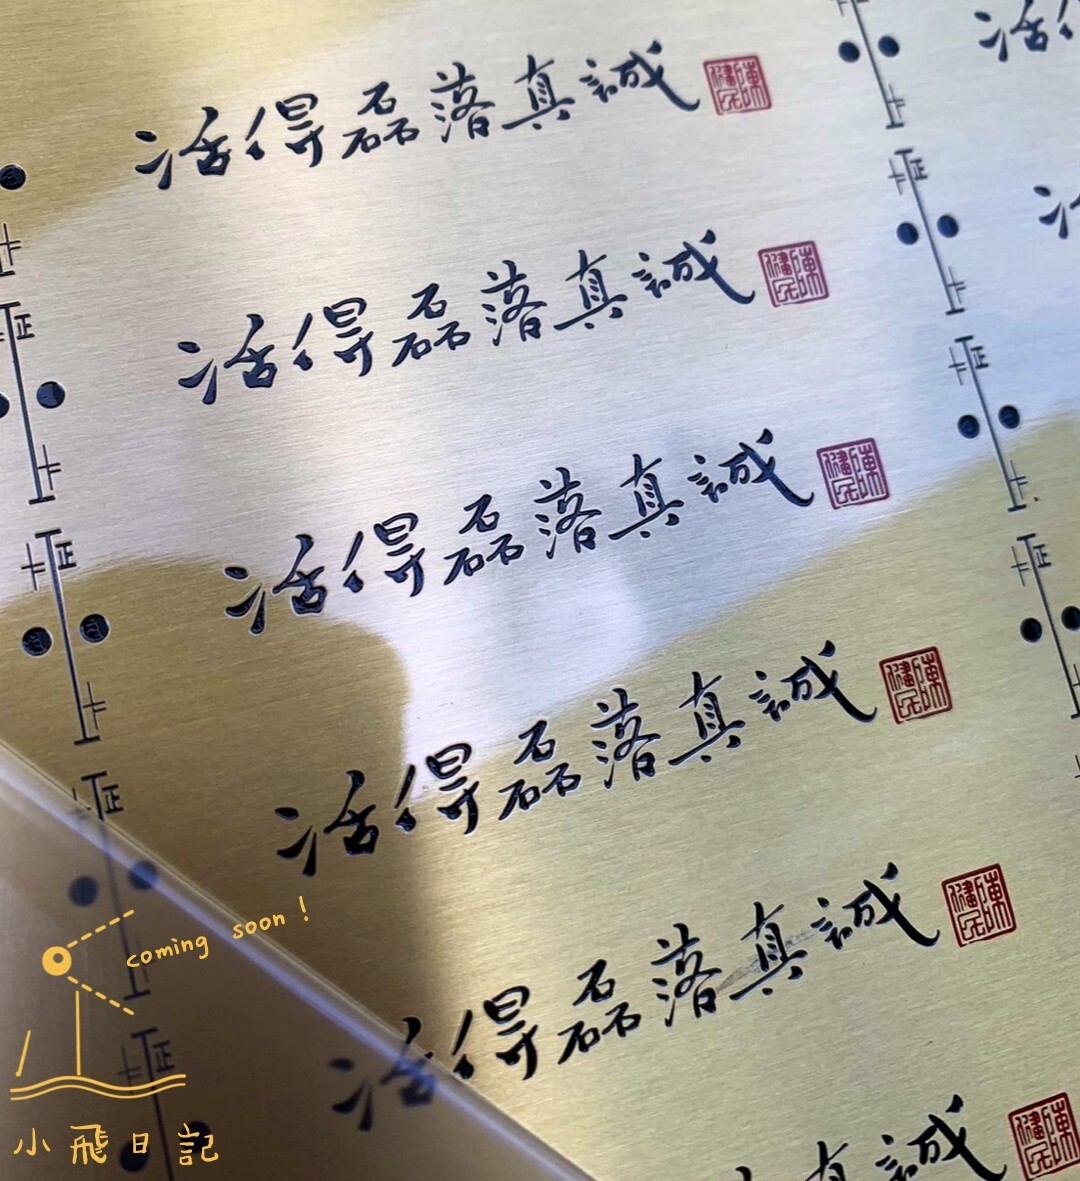 活得磊落真誠 陳健民
活得
活得磊落真誠 陳健民
活得磊落真誠 陳健民
活得磊落真誠 陳健民
活得磊落真誠 陳健民
真誠 陳健民
正
正
正
正
正
正
正
正
coming soon !
小飛日記